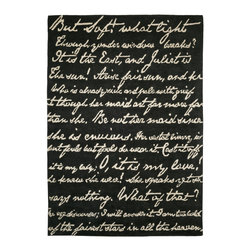 But Soft, what light
Through yonder window breaks?
It is the East, and Juliet is
The sun! Arise fair sun, and kill
Who is already sick and pale with grief
t though her maid art far more fair
than she. Be not her maid since
she is envious. Her vestal livery is
but fools
it is my lady; O, it is my love!
she knew she were! She speaks yet she
says nothing. What of that?
her eye discourses; I will answer it. I am too bold
of the fairest stars in all the heaven